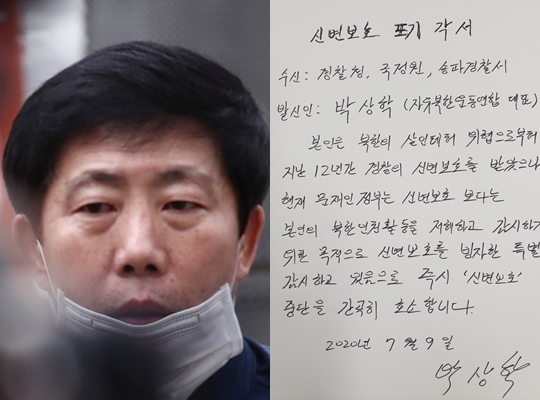 신변보호 포기 각서
수신: 경찰청, 국정원, 송파경찰서
발신인: 박상학 (자유북한운동연합 대표)
본인은 북한의 살인테러 위협으로부터
지난 12년간 경찰의 신변보호를 받았으나
현재 문재인 정부는 신변보호 보다는
본인의 북한인권활동을 저해하고 감시하기
위한 목적으로 신변보호를 빙자한 특별
감시하고 있음으로 즉시 '신변보호'
중단을 간곡히 호소합니다.
2020년 7월 9일
박상학